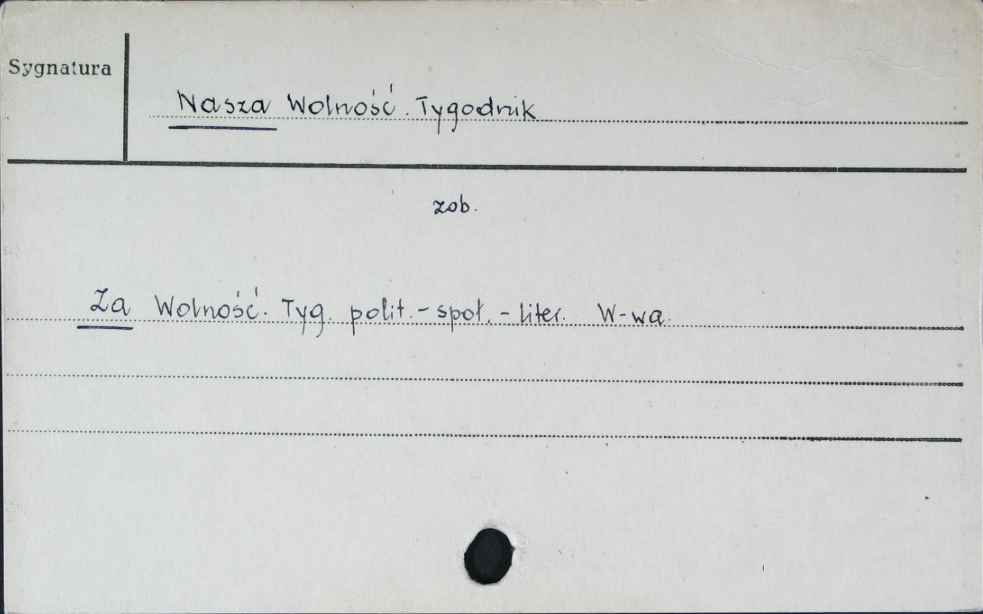 Sygnatura
Nasza Wolność. Tygodnik
zob.
Za Wolność. Tyg. polit.-społ.-liter. W-wa